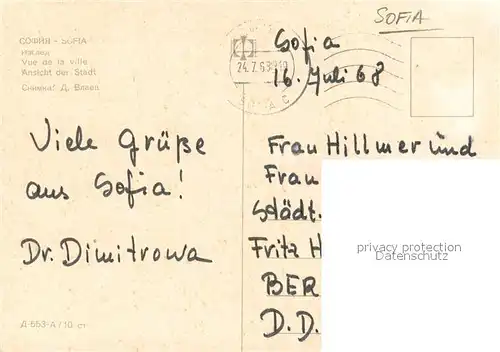 SOFIA
СОФИЯ - SOFIA
Vue de la ville
Ansicht der Stadt
Снимка: Д. Влаев
24.7.68
Sofia
16. Juli 68
Viele Grüße
aus Sofia!
Dr. Dimitrowa
Frau Hillmer und
Frau
Städt.
Fritz H
BER
D.D.
privacy protection
Datenschutz
Д-553-А/10 ст